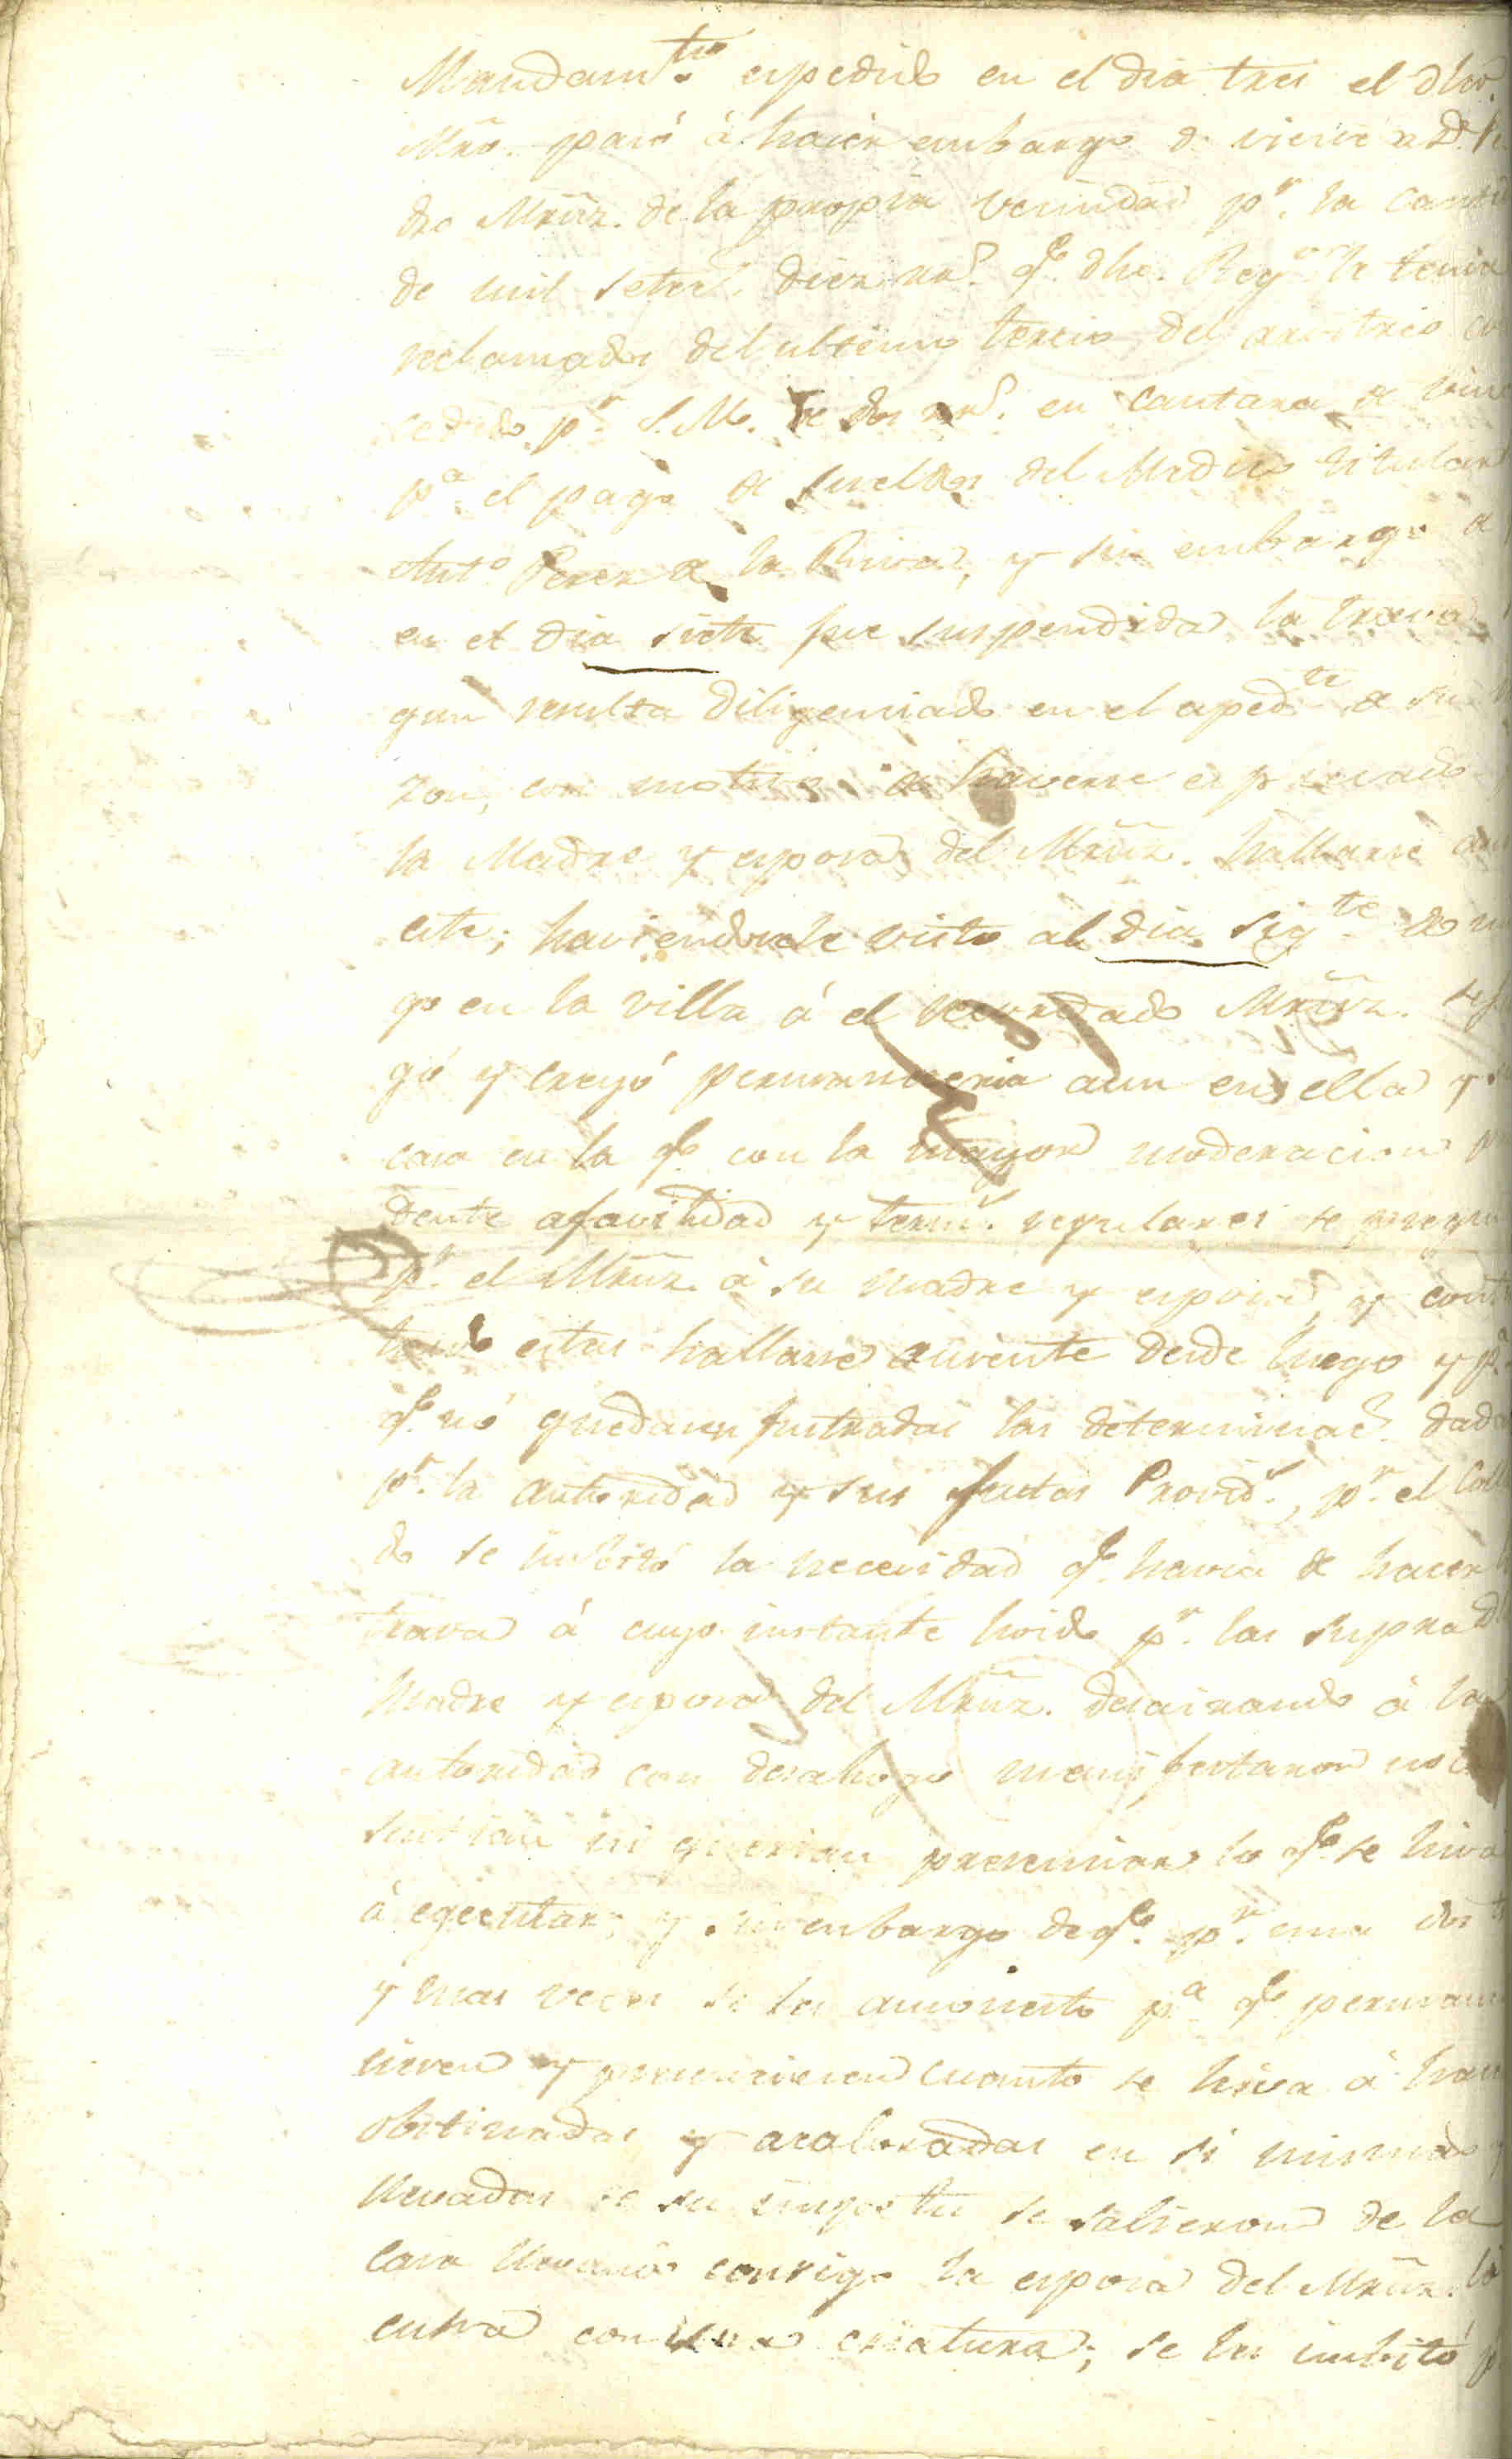 Mandamto. espedido en el dia tres el dho.
Mro. pasó á hacer embargo de viene a Dn. Pe
dro Mrñz. de la propia vecindad pr. la canti
de mil setecs. diez rrs. qe. dho. Regr. le tenia
reclamados del ultimo tercio del arvitrio con
cedido pr. S.M. de dos rrs. en cantara de vino
pa. el pago de sueldos del Medico titular
Anto. Perez de la Riva, y sin embargo de
en el dia siete fue suspendida la trava
gun resulta diligenciado en el espedte. de su ra
zon, con motivo de haverse espresado
la Madre y esposa del Mrñz. hallarse au
ente; haviendosele visto al dia sigte. do
go en la villa á el recordado Mrñz.
gó y creyó permaneceria aun en ella y
casa en la qe. con la mayor moderacion pru
dente afavilidad y terms. regulares se pregun
pr. el Mrñz. á su madre y esposa, y contes
tando estas hallarse ausente desde luego y pa.
qe. nó quedasen frustradas las determinacs. dadas
pr. la autoridad y sus justas Provids., pr. el
do se imbitó la necesidad qe. havia de hacer
trava á cuyo instante hoido pr. las suprad
Madre y esposa del Mrñz. desairando á la
autoridad con desahogo manifestaron no
sentian ni querian presenciar lo qe. se hiva
á egecutar; y sin enbargo de qe. pr. una dos
y mas veces se les amonesto pa. qe. permane
cieren y presenciesen cuanto se hiva á hacer
obstinadas y acaloradas en si mismas y
llevadas de su impetu se salieron de la
casa llevando consigo la esposa del Mrñz. la
cuna con una criatura; se les imbitó p